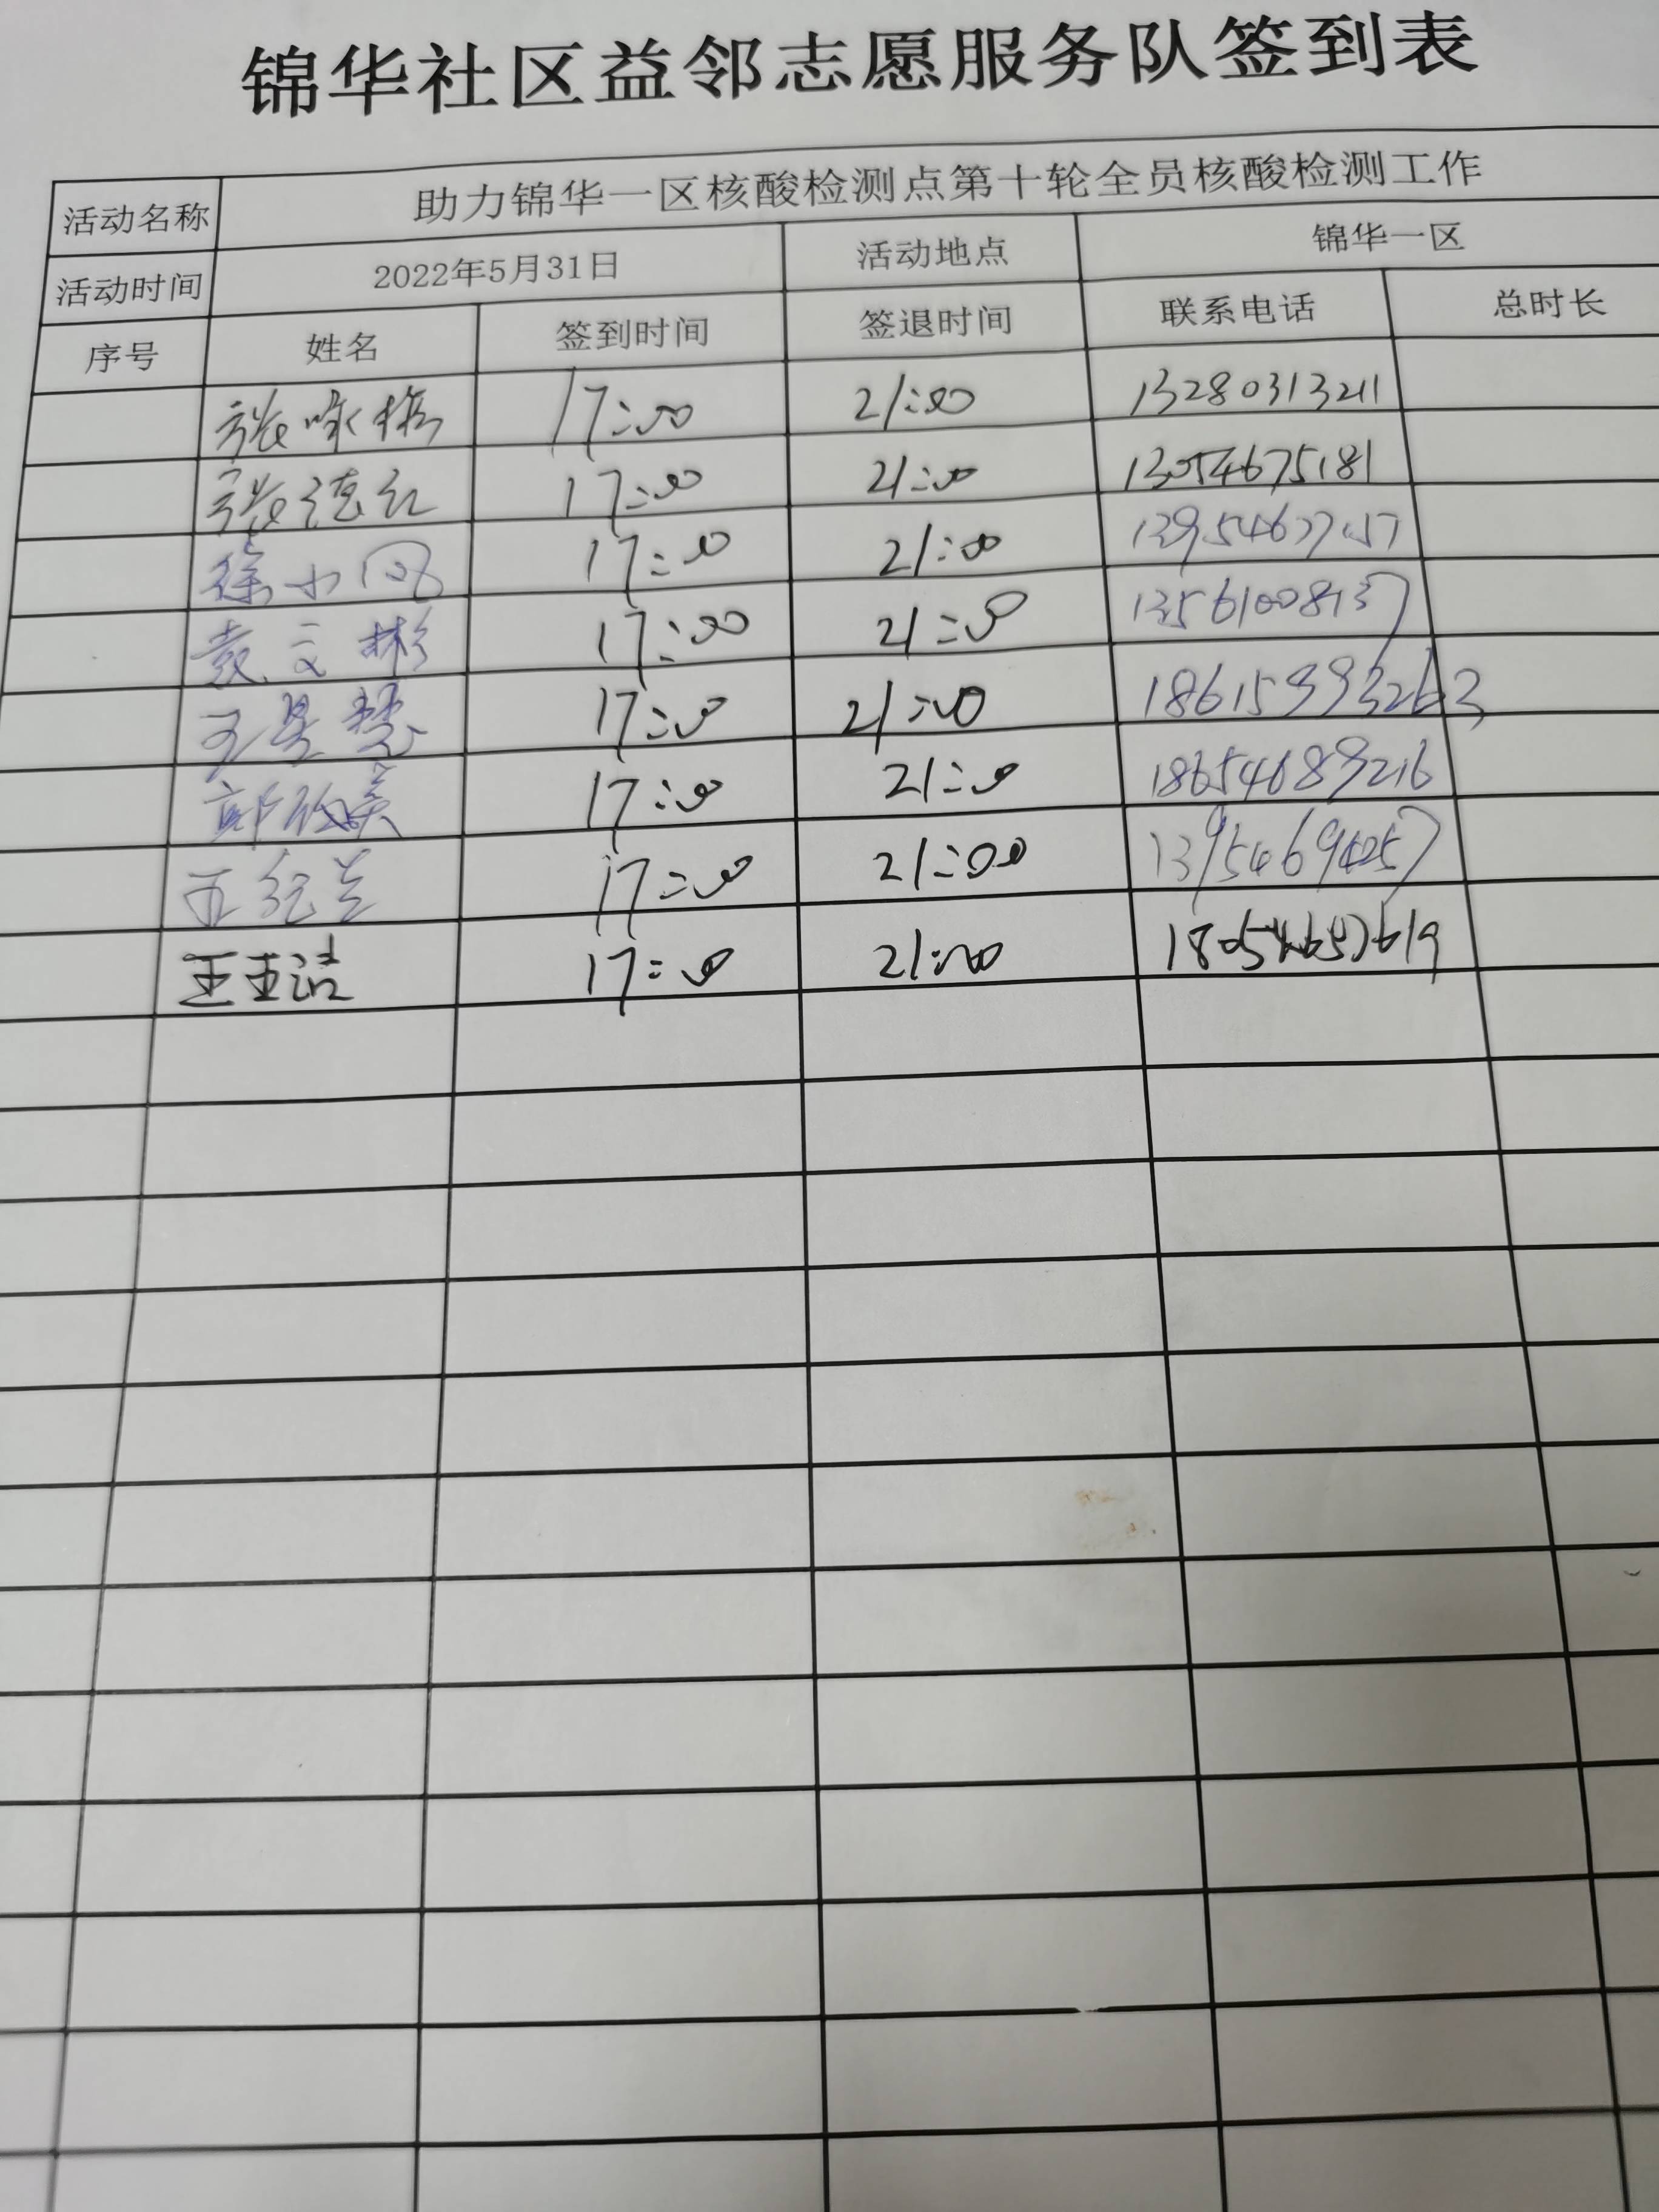 锦华社区益邻志愿服务队签到表
活动名称 助力锦华一区核酸检测点第十轮全员核酸检测工作
活动时间 2022年5月31日 活动地点 锦华一区
序号 姓名 签到时间 签退时间 联系电话 总时长
张咏梅 17:00 21:00 13280313211
张德红 17:00 21:00 13054675181
徐小凤 17:00 21:00
袁文彬 17:00 21:00 13561008137
王景慧 17:00 21:00 18615993263
17:00 21:00 18654689216
17:00 21:00 13954694257
王王洁 17:00 21:00